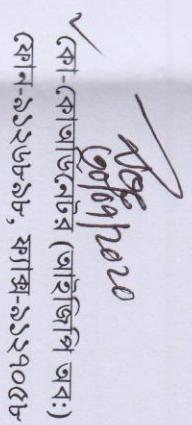 কো-কোঅর্ডিনেটর (আইজিপি অবঃ)
ফোন-৯১২৬৮৯৮, ফ্যাক্স-৯১২৭০৫৮